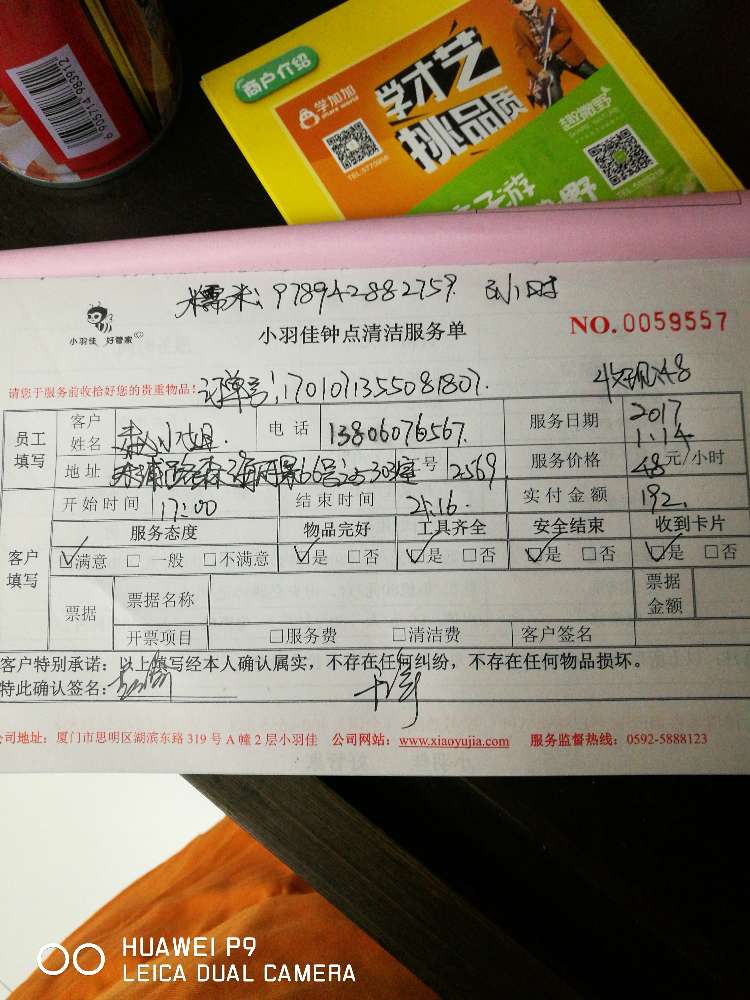 6 905714 983912
商户介绍
学加加
学才艺
挑品质
糯米: 978942882759
小羽佳 好管家
小羽佳钟点清洁服务单
NO. 0059557
请您于服务前收拾好您的贵重物品!
订单号: 1701071355081807.
收现48
员工填写
客户姓名
小姐.
电话 13806076567.
服务日期 2017 1.14
地址
工号 2569
服务价格 48元/小时
客户填写
开始时间 17:00
结束时间 21:16
实付金额 192.
服务态度 物品完好 工具齐全 安全结束 收到卡片
☑满意 □ 一般 □不满意 ☑是 □否 ☑是 □否 ☑是 □否 ☑是 □否
票据 票据名称 票据金额
开票项目 □服务费 □清洁费 客户签名
客户特别承诺:以上填写经本人确认属实,不存在任何纠纷,不存在任何物品损坏。
特此确认签名:
公司地址:厦门市思明区湖滨东路319号A幢2层小羽佳 公司网站:www.xiaoyujia.com 服务监督热线:0592-5888123
HUAWEI P9
LEICA DUAL CAMERA